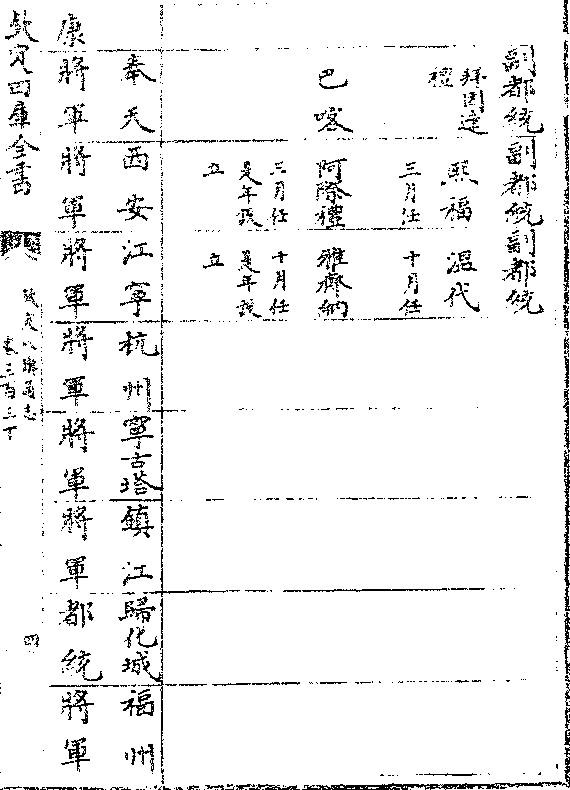 副都統副都統副都統
拜因達
禮
熙福
三月任
溫代
十月任
巴喀
阿際禮
三月任
是年設
立
雅齊納
十月任
是年設
立
奉天西安江寧杭州寧古塔鎮江歸化城福州
康將軍將軍將軍將軍將軍將軍都統將軍
欽定四庫全書
欽定八旗通志
卷三百三下
四